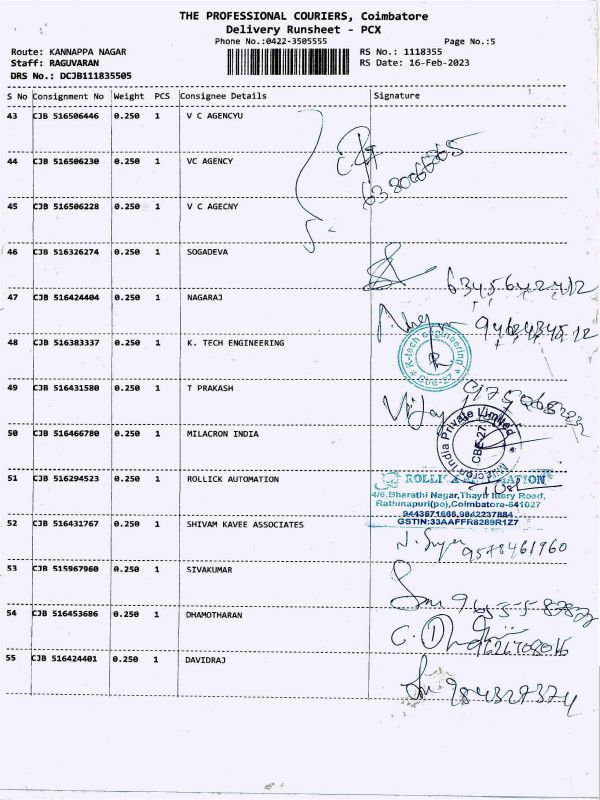 THE PROFESSIONAL COURIERS, Coimbatore
Delivery Runsheet - PCX
Phone No.:0422-3505555 Page No.:5
Route: KANNAPPA NAGAR RS No.: 1118355
Staff: RAGUVARAN RS Date: 16-Feb-2023
DRS No.: DCJB111835505
S No Consignment No Weight PCS Consignee Details Signature
43 CJB 516506446 0.250 1 V C AGENCYU
44 CJB 516506230 0.250 1 VC AGENCY
45 CJB 516506228 0.250 1 V C AGECNY
46 CJB 516326274 0.250 1 SOGADEVA
6345642412
47 CJB 516424404 0.250 1 NAGARAJ
48 CJB 516383337 0.250 1 K. TECH ENGINEERING
K-tech engineering
Cbe-27
49 CJB 516431580 0.250 1 T PRAKASH
Vijay
50 CJB 516466780 0.250 1 MILACRON INDIA
Milacron India Private Limited
CBE-27
51 CJB 516294523 0.250 1 ROLLICK AUTOMATION
ROLLICK AUTOMATION
4/6,Bharathi Nagar, Road,
Rathinapuri(po),Coimbatore-641027
9443871666,9842237884
GSTIN:33AAFFR8289R1Z7
52 CJB 516431767 0.250 1 SHIVAM KAVEE ASSOCIATES
9578461960
53 CJB 515967960 0.250 1 SIVAKUMAR
54 CJB 516453686 0.250 1 DHAMOTHARAN
9626708016
55 CJB 516424401 0.250 1 DAVIDRAJ
984327374